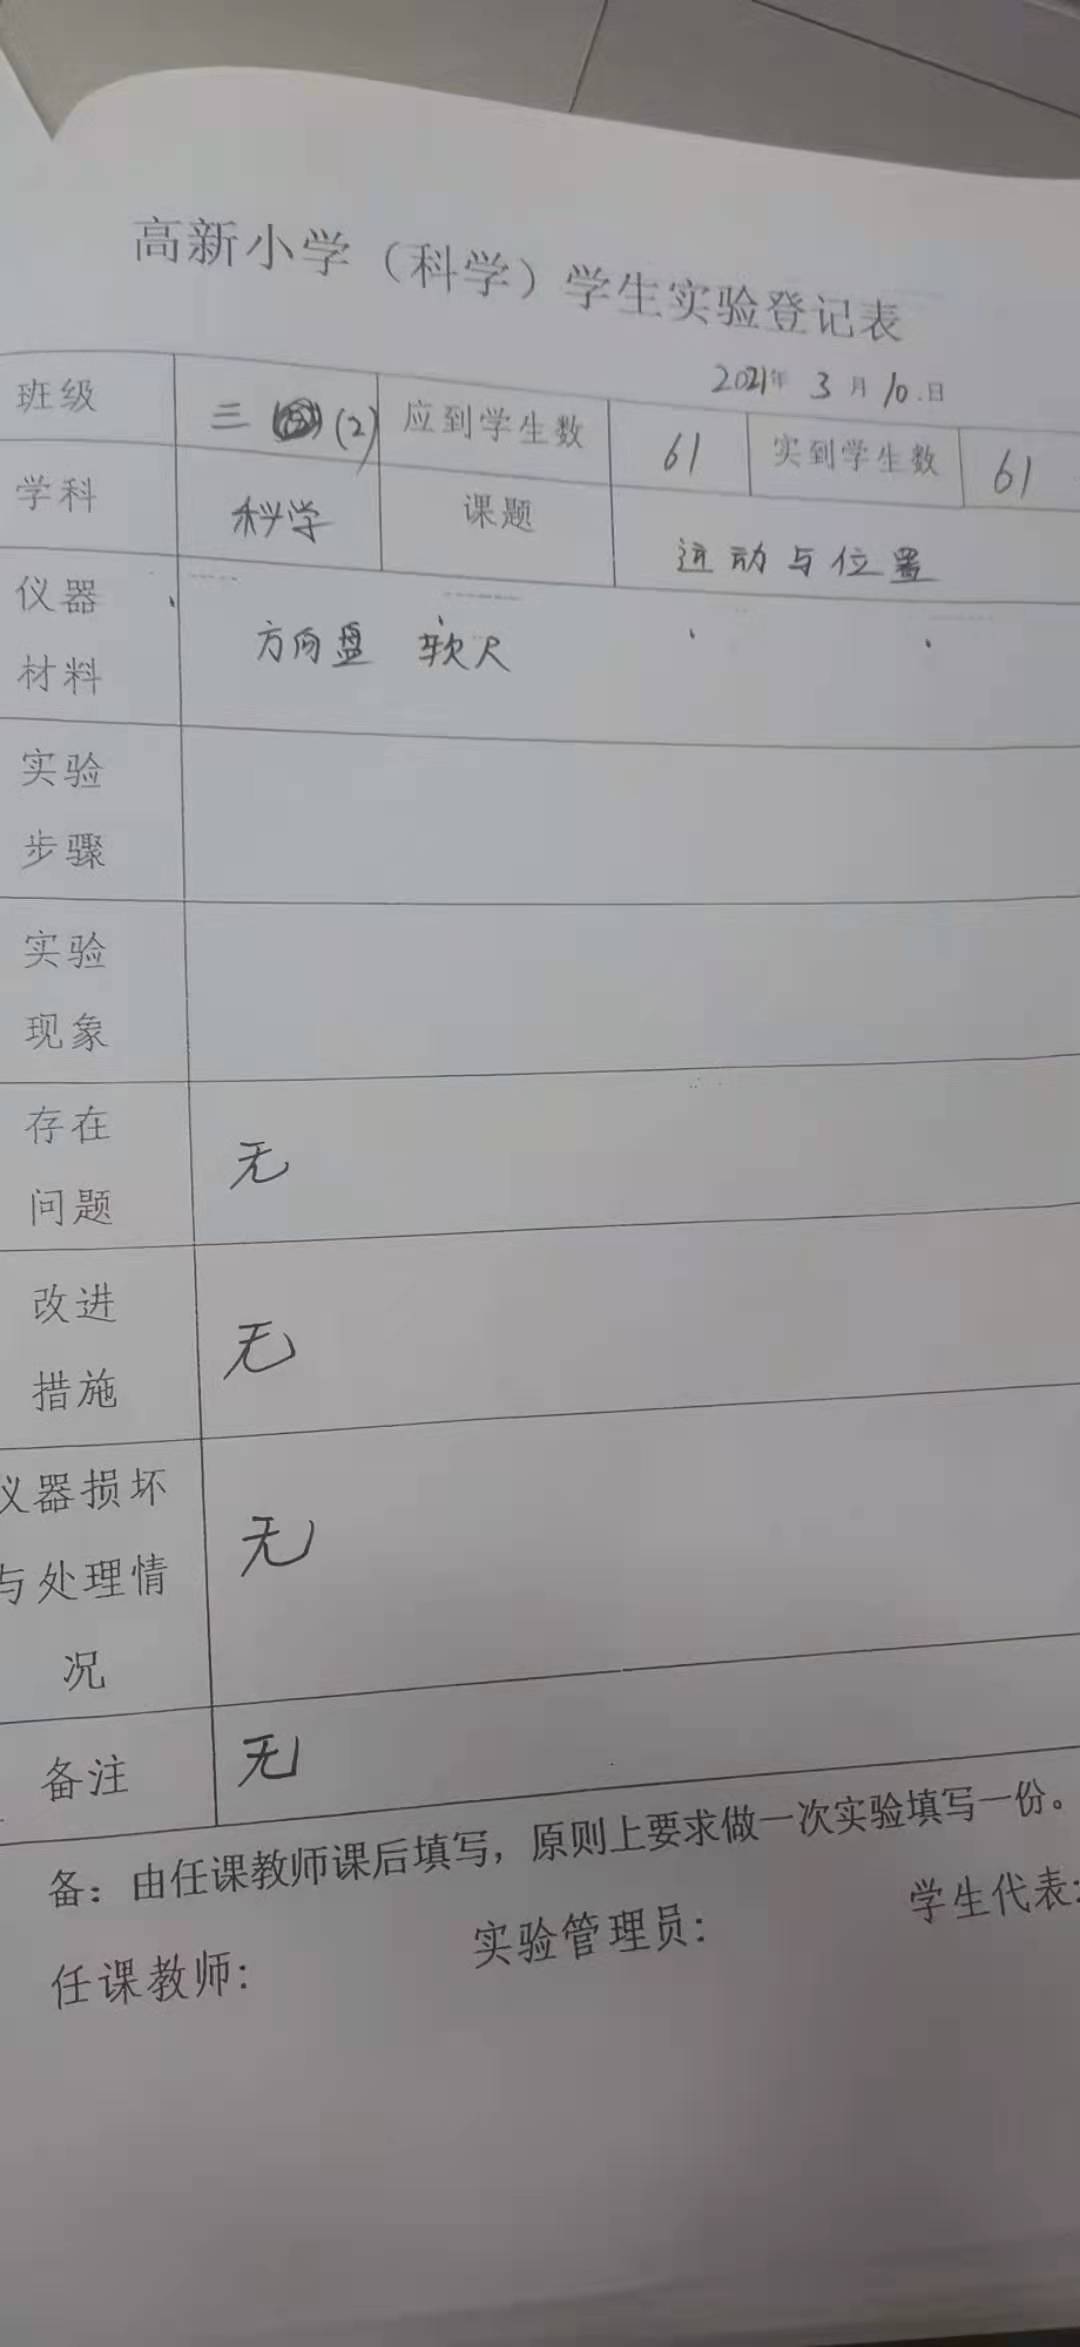 高新小学（科学）学生实验登记表
2021年 3 月 10 日
班级 三 (2) 应到学生数 61 实到学生数 61
学科 科学 课题 运动与位置
仪器
材料
方向盘 软尺
实验
步骤
实验
现象
存在
问题
无
改进
措施
无
仪器损坏
与处理情
况
无
备注 无
备：由任课教师课后填写，原则上要求做一次实验填写一份。
任课教师： 实验管理员： 学生代表：